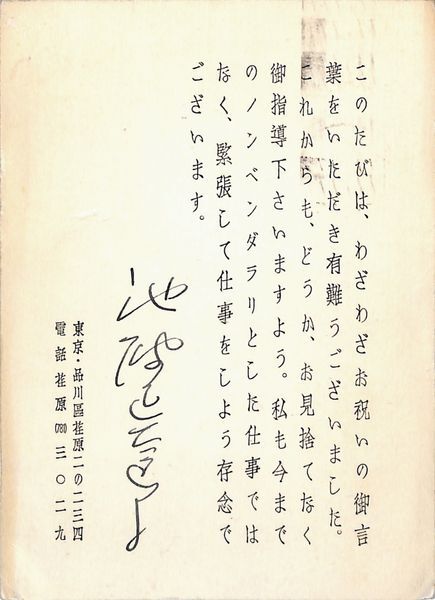 このたびは、わざわざお祝いの御言
葉をいただき有難うございました。
これからも、どうか、お見捨てなく
御指導下さいますよう。私も今まで
のノンベンダラリとした仕事では
なく、緊張して仕事をしよう存念で
ございます。
池波正太郎
東京・品川區荏原二の二三四
電話荏原(78)三〇二九